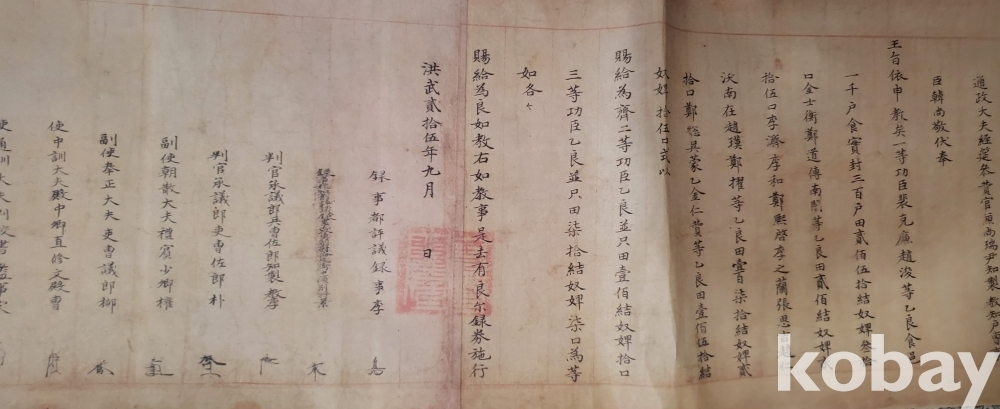 通政大夫經筵參贊官 尚瑞尹知製教知戶曹事
臣韓尚敬伏奉
王旨依申教矣一等功臣裴克廉趙浚等乙良食邑
一千戶食實封三百戶田貳佰伍拾結奴婢叄拾
口金士衡鄭道傳南誾等乙良田貳佰結奴婢
拾伍口李濟李和鄭熙啓李之蘭張思吉趙
沃南在趙璞鄭擢等乙良田壹百柒拾結奴婢貳
拾口鄭摠 蒙乙金仁贊等乙良田壹佰伍拾結
奴婢拾伍口式以
賜給為齊二等功臣乙良並只田壹佰結奴婢拾口
三等功臣乙良並只田柒拾結奴婢柒口為等
如各々
賜給為良如教右如教事是去有良尔錄券施行
洪武貳拾伍年九月 日
錄事都評議錄事李
判官承議郎兵曹佐郎知製教李
判官承議郎吏曹佐郎朴
副使朝散大夫禮賓少卿權
副使奉正大夫吏曹議郎柳
使中訓大夫殿中卿直修文殿曹
使通訓大夫
kobay